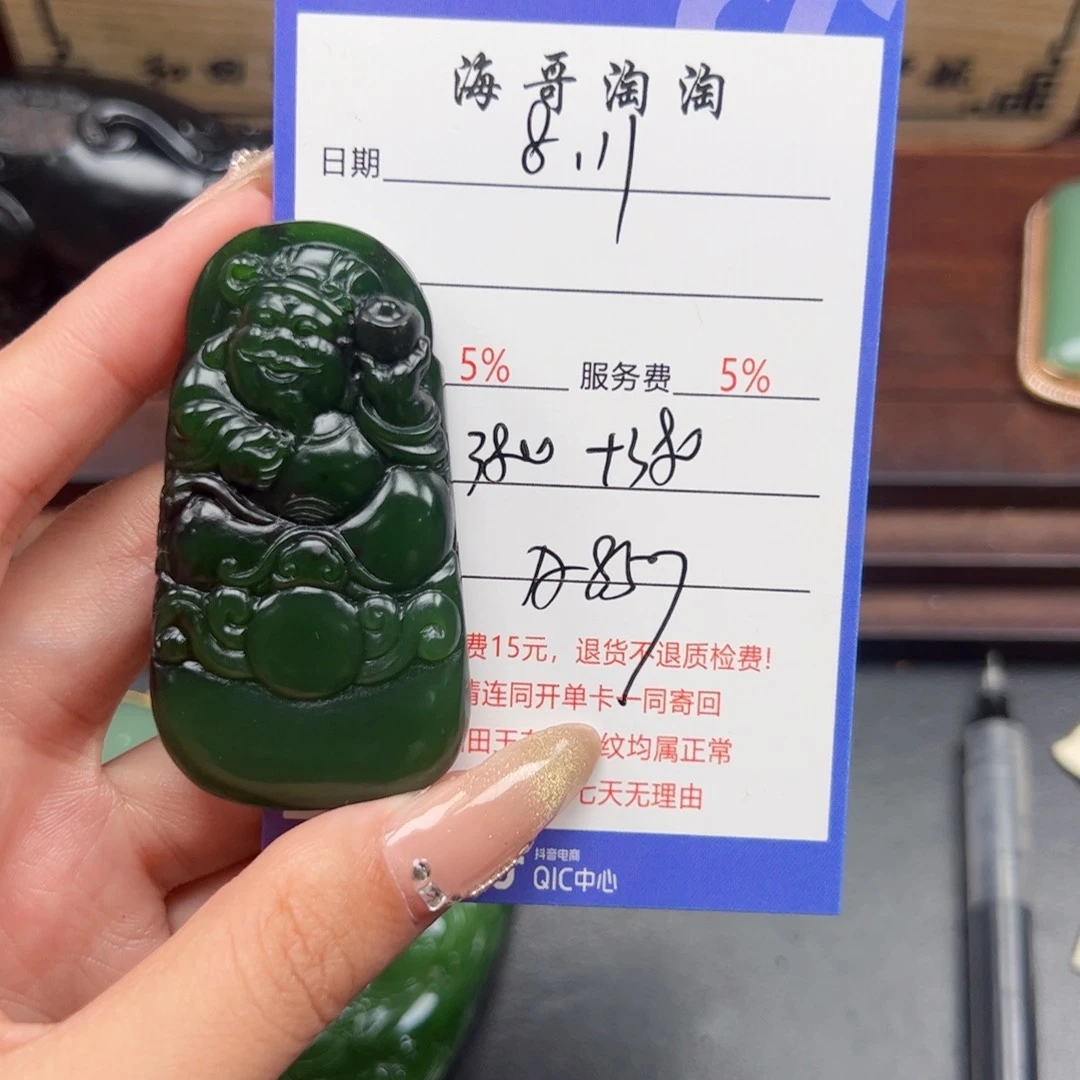 和田
海哥淘淘
日期 8.11
5% 服务费 5%
3800 +380
A-857
费15元，退货不退质检费!
请连同开单卡一同寄回
田玉 纹均属正常
七天无理由
抖音电商
QIC中心